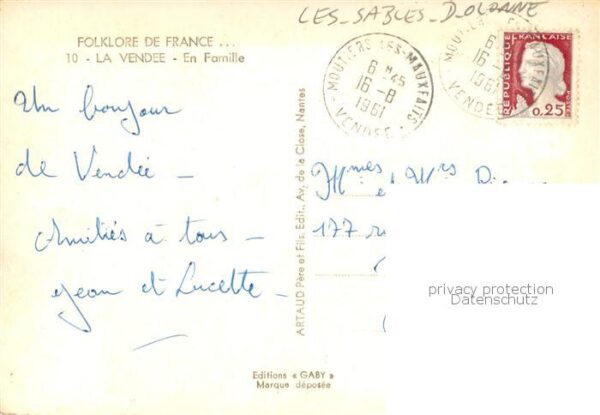 LES-SABLES-D'OLONNE
FOLKLORE DE FRANCE ...
10 - LA VENDÉE - En Famille
MOUTIERS-LES-MAUXFAITS
6 H 45
16-8
1961
VENDÉE
MOUTIERS
6
16-
1961
VENDÉE
REPUBLIQUE FRANÇAISE
0,25
Un bonjour
de Vendée -
Amitiés à tous -
Jean et Lucette -
ARTAUD Père et Fils, Edit., Av. de la Close, Nantes
Mmes et Mrs
177
privacy protection
Datenschutz
Editions « GABY »
Marque déposée